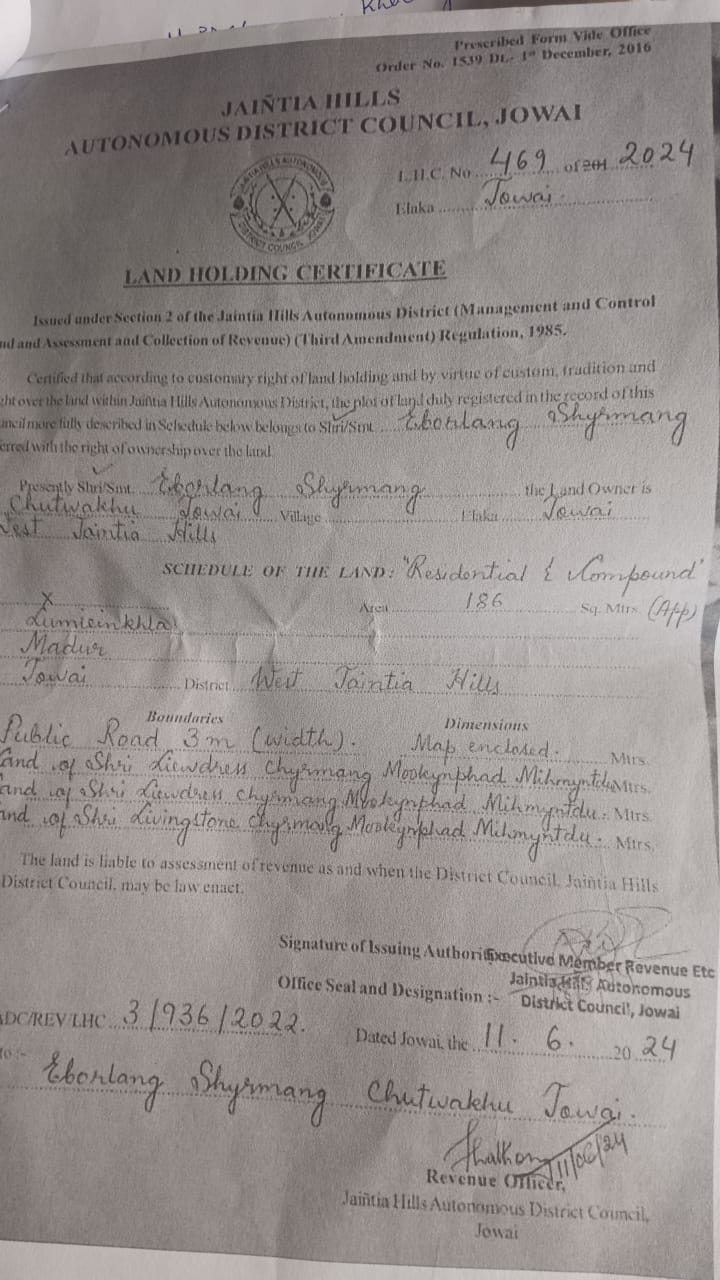 Prescribed Form Vide Office
Order No. 1539 Dt.- 1st December, 2016
JAIÑTIA HILLS
AUTONOMOUS DISTRICT COUNCIL, JOWAI
L.H.C. No 469 of 201 2024
Elaka Jowai.
LAND HOLDING CERTIFICATE
Issued under Section 2 of the Jaintia Hills Autonomous District (Management and Control
nd and Assessment and Collection of Revenue) (Third Amendment) Regulation, 1985.
Certified that according to customary right of land holding and by virtue of custom, tradition and
ght over the land within Jaiñtia Hills Autonomous District, the plot of land duly registered in the record of this
uncil more fully described in Schedule below belongs to Shri/Smt. Eborlang Shyrmang
erred with the right of ownership over the land.
Presently Shri/Smt. Eborlang Shyrmang the Land Owner is
Chutwakhu Jowai Village Elaka Jowai
West Jaintia Hills
SCHEDULE OF THE LAND: "Residential & Compound"
x Area 186 Sq. Mtrs (App)
Madur
Jowai District West Jaintia Hills
Boundaries Dimensions
Public Road 3m (width). Map enclosed. Mtrs.
and of Shri Liewdress Chyrmang Mookynphad Mihmyntdu Mtrs.
and of Shri Liewdress Chyrmang Mookynphad Mihmyntdu. Mtrs.
and of Shri Livingstone Chyrmang Mookynphad Mihmyntdu. Mtrs.
The land is liable to assessment of revenue as and when the District Council, Jaintia Hills
District Council, may be law enact.
Signature of Issuing Authority Executive Member Revenue Etc
Office Seal and Designation :- Jaintia Hills Autonomous
District Council, Jowai
ADC/REV/LHC 3/936/2022. Dated Jowai, the 11. 6. 20 24
to :-
Eborlang Shyrmang Chutwakhu Jowai.
11/06/24
Revenue Officer,
Jaiñtia Hills Autonomous District Council,
Jowai